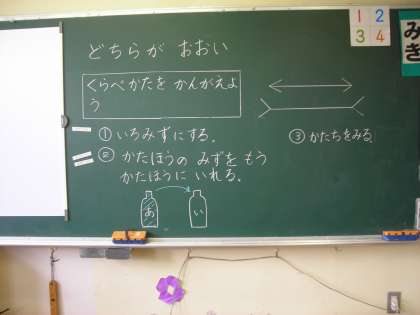 どちらが おおい
くらべかたを かんがえよ
う
①いろみずにする。
②かたほうの みずを もう
かたほうに いれる。
③かたちをみる。
あ
い
1 2
3 4
みき